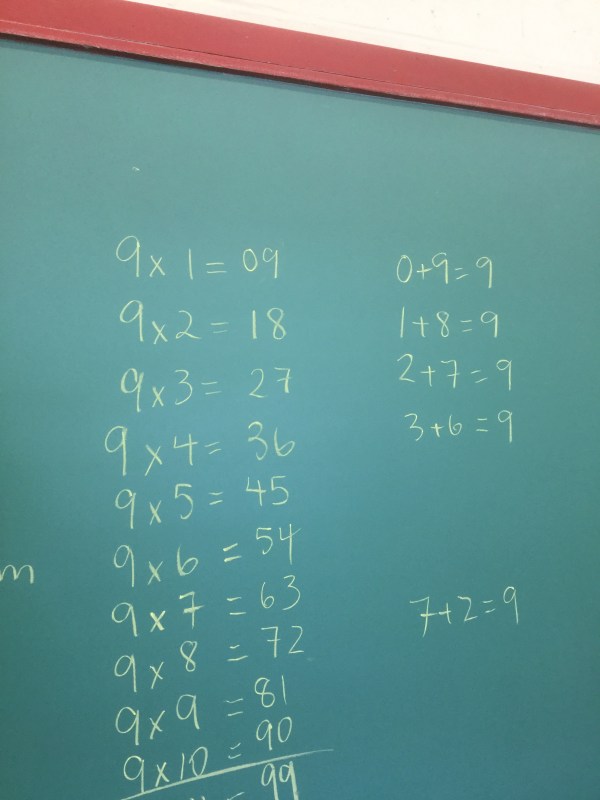 9 x 1 = 09
9 x 2 = 18
9 x 3 = 27
9 x 4 = 36
9 x 5 = 45
9 x 6 = 54
9 x 7 = 63
9 x 8 = 72
9 x 9 = 81
9 x 10 = 90
= 99
0+9=9
1+8=9
2+7=9
3+6=9
7+2=9
m